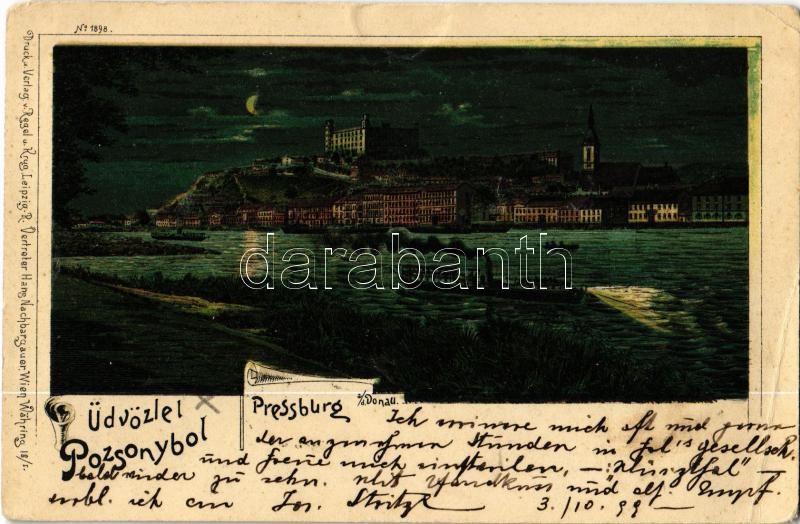 No 1898.
Druck u. Verlag v. Regel u. Krug, Leipzig, R. Vertreter Hans Nachbargauer, Wien, Währing 18/1.
darabanth
Üdvözlel
Pozsonybol
Pressburg
a/d Donau.
Ich erinnere mich oft und gerne
der angenehmen Stunden in gesellsch.
und freue mich einstweilen,
bald wieder zu sehn. Mit Handkuss und alf. Empf.
verbl. ich am Jos. Stritzl 3./10. 99 —